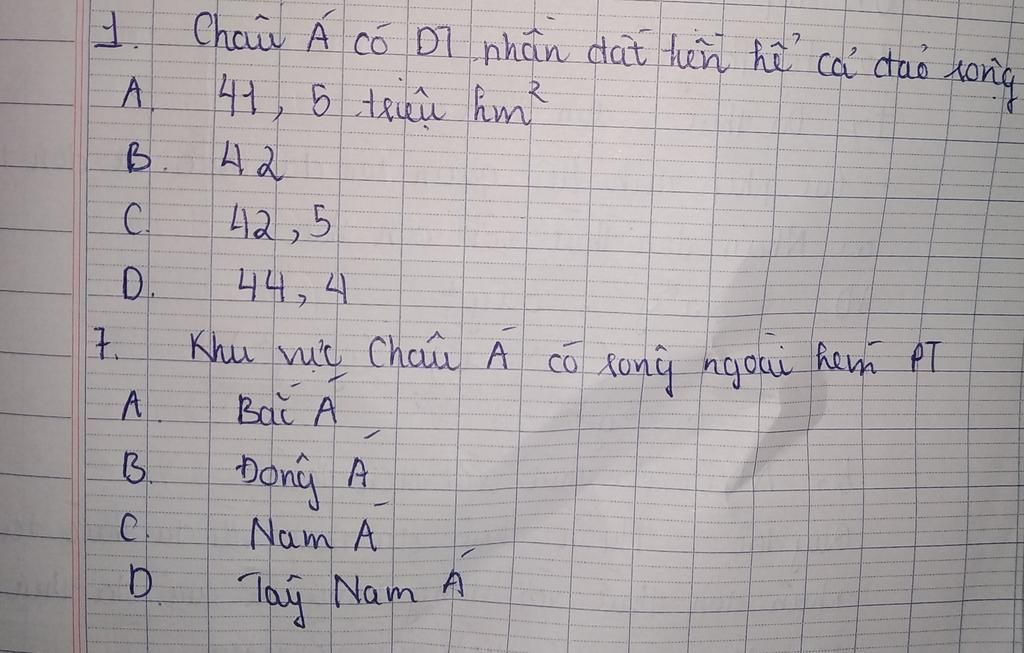 1. Châu Á có DT phần đất liền kể cả đảo rộng
A. 41, 5 triệu km²
B. 42
C. 42, 5
D. 44, 4
7. Khu vực Châu Á có sông ngòi kém PT
A. Bắc Á
B. Đông Á
C. Nam Á
D Tây Nam Á